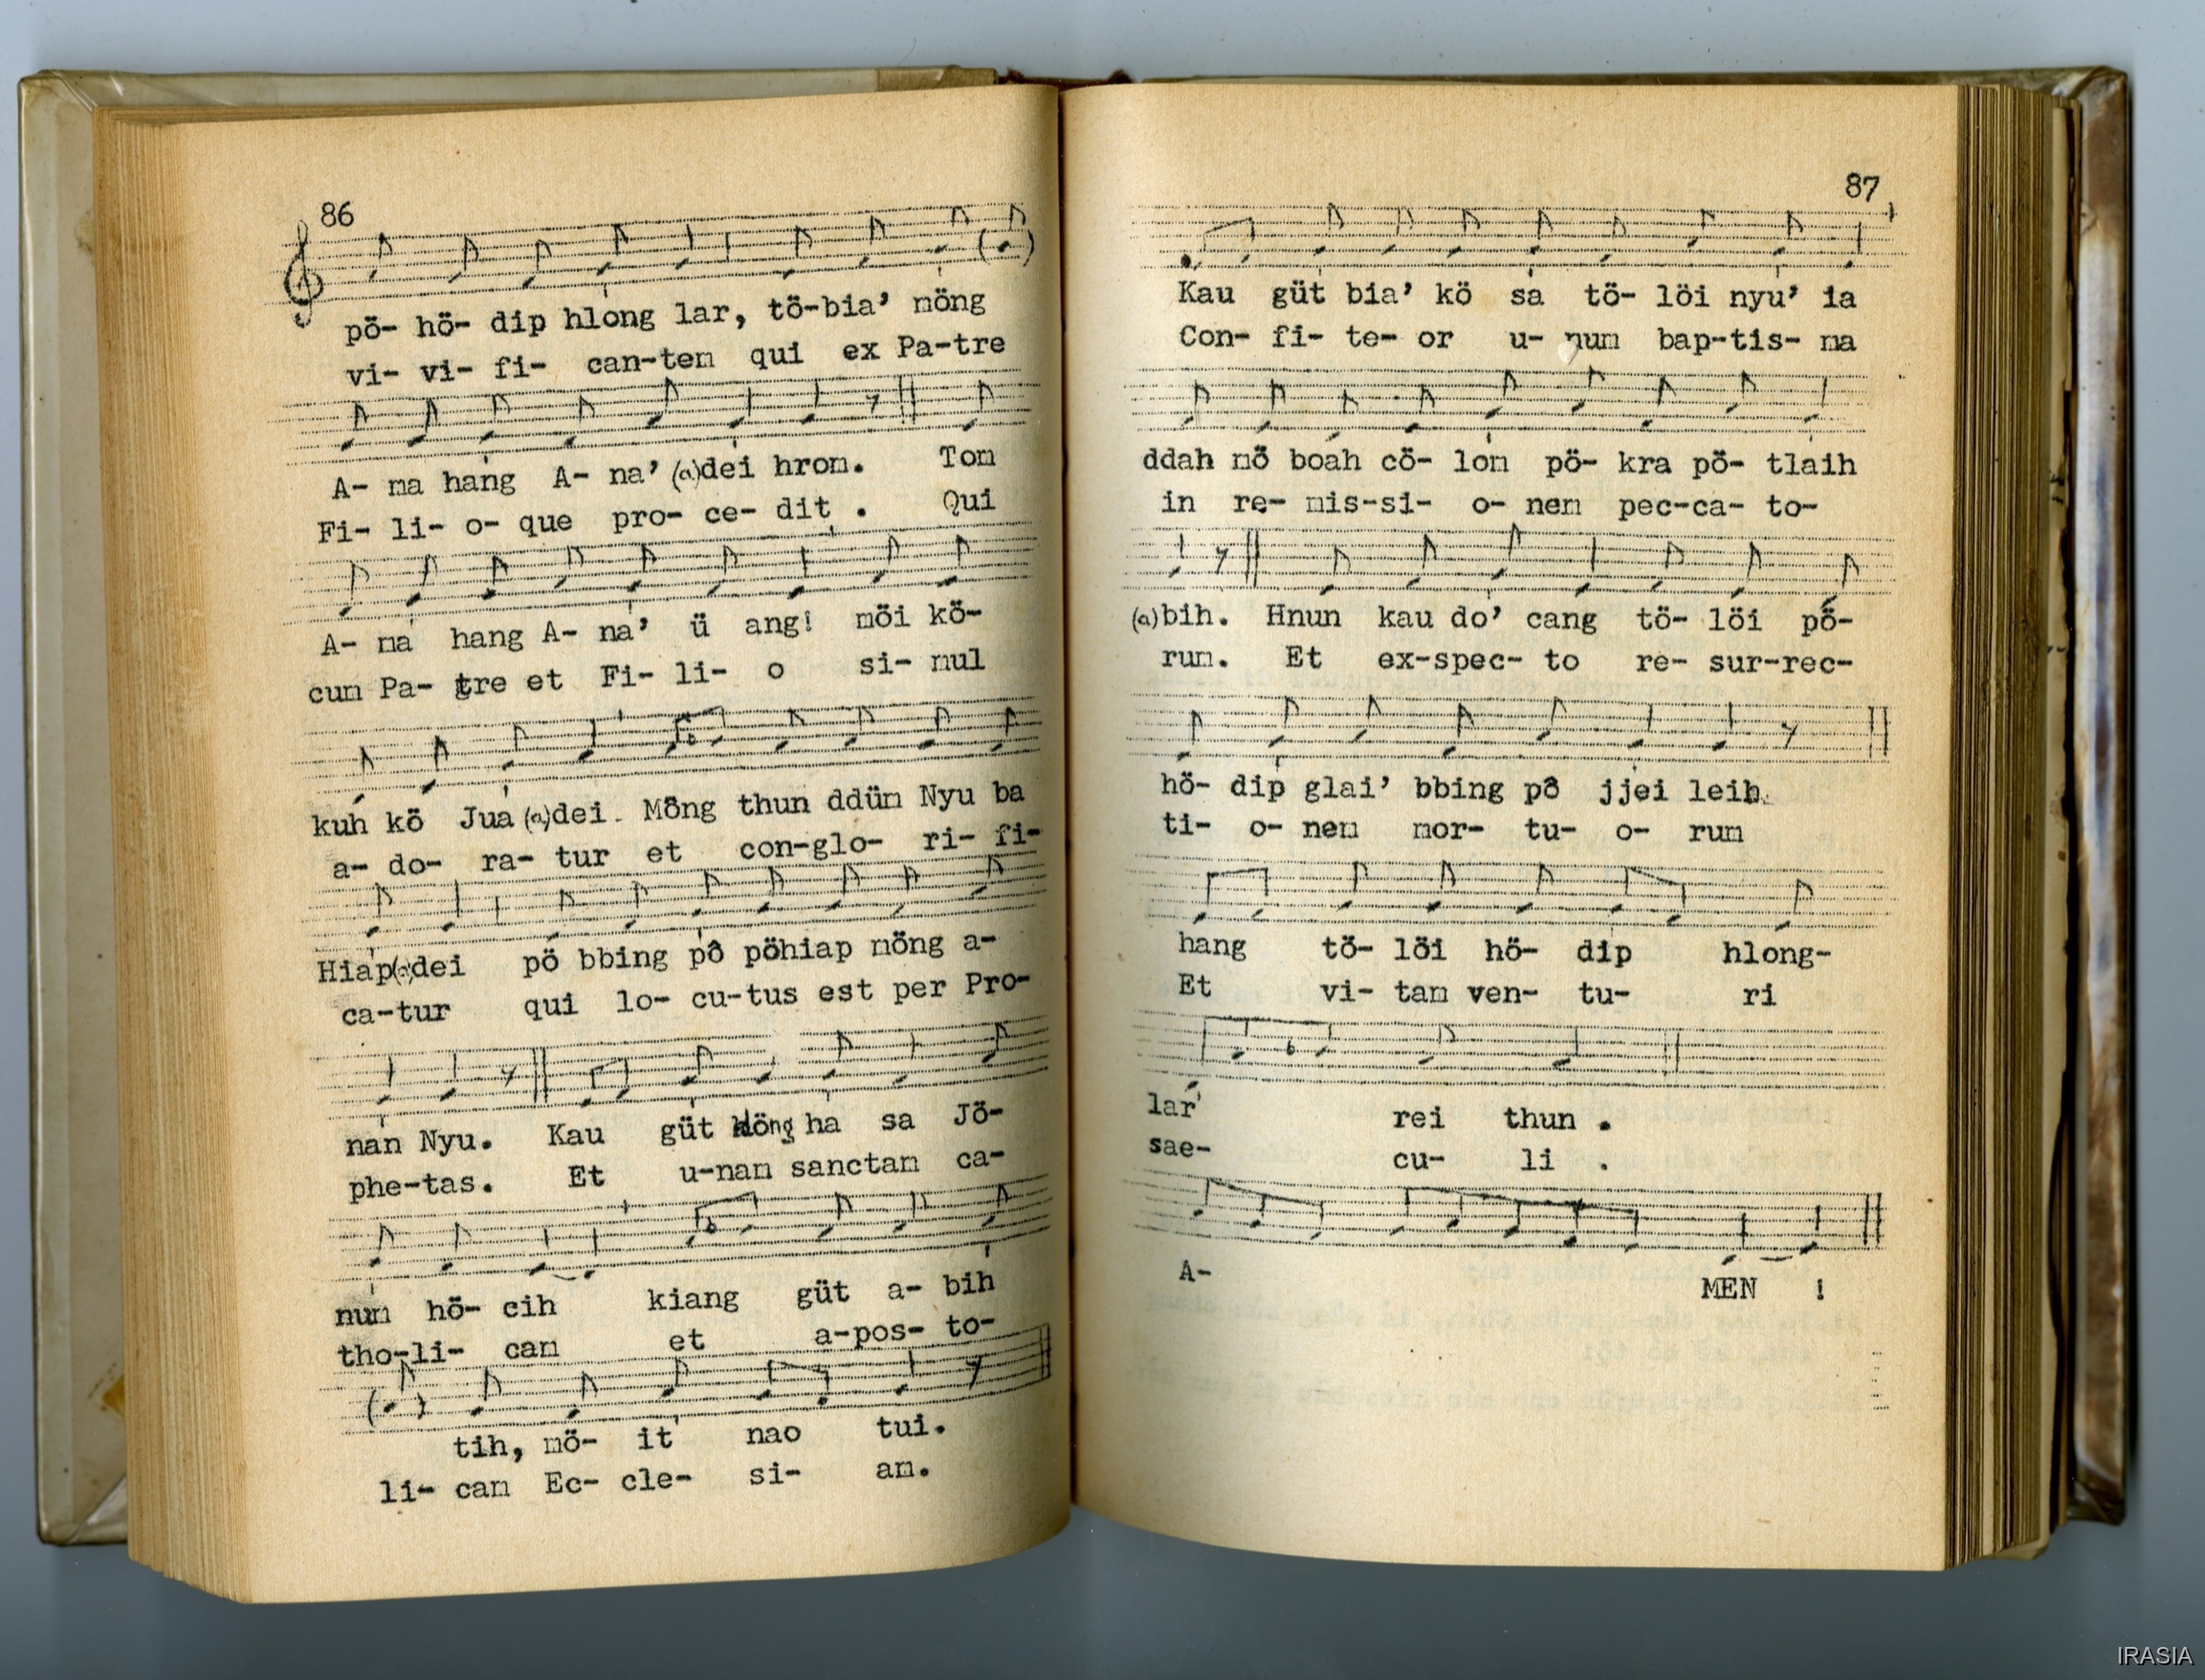 86
pö- hö- dip hlong lar, tö-bia’ nöng
vi- vi- fi- can-tem qui ex Pa-tre
A- ma hang A- na’ (a)dei hrom. Tom
Fi- li- o- que pro- ce- dit . Qui
A- ma hang A- na’ ü ang! möi kö-
cum Pa- tre et Fi- li- o si- mul
kuh kö Jua (a)dei. Möng thun ddüm Nyu ba
a- do- ra- tur et con-glo- ri- fi-
Hiap(a)dei pö bbing pô pöhiap nöng a-
ca-tur qui lo- cu-tus est per Pro-
nan Nyu. Kau güt hlöng ha sa Jö-
phe-tas. Et u-nam sanctam ca-
num hö- cih kiang güt a- bih
tho-li- cam et a-pos- to-
tih, mö- it nao tui.
li- cam Ec- cle- si- am.
87
Kau güt bia’ kö sa tö- löi nyu’ ia
Con- fi- te- or u- num bap-tis- ma
ddah mö boah cö- lom pö- kra pö- tlaih
in re- mis-si- o- nem pec-ca- to-
(a)bih. Hnun kau do’ cang tö- löi pö-
rum. Et ex-spec- to re- sur-rec-
hö- dip glai’ bbing pô jjei leih
ti- o- nem mor- tu- o- rum
hang tö- löi hö- dip hlong-
Et vi- tam ven- tu- ri
lar rei thun .
sae- cu- li .
A- MEN !
IRASIA